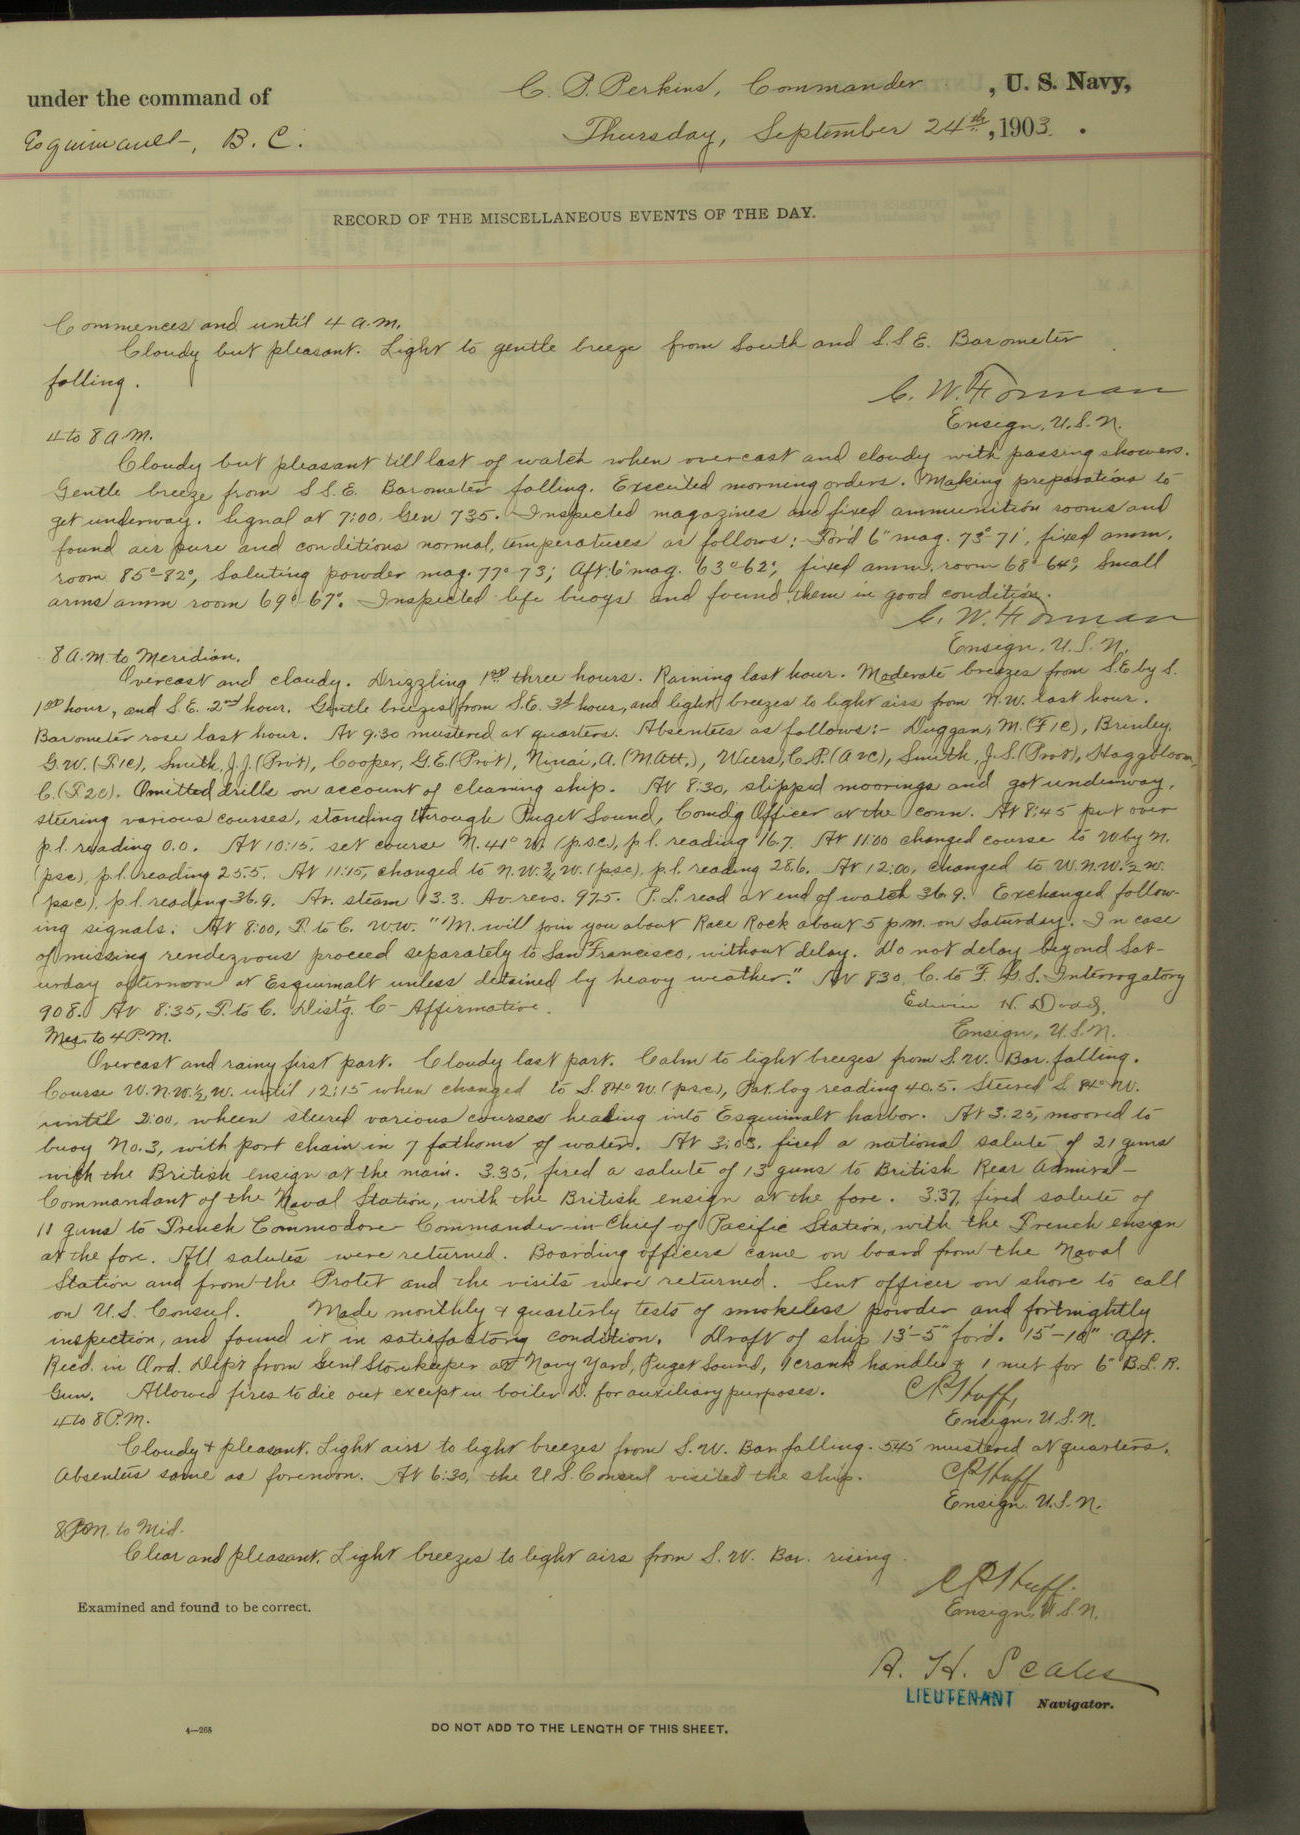 under the command of C. P. Perkins, Commander, U. S. Navy,
Esquimault, B. C. Thursday, September 24th, 1903.
RECORD OF THE MISCELLANEOUS EVENTS OF THE DAY.
Commences and until 4 a.m.
Cloudy but pleasant. Light to gentle breeze from South and S.S.E. Barometer
falling.
C. W. Forman
Ensign, U.S.N.
4 to 8 A.M.
Cloudy but pleasant till last of watch when overcast and cloudy with passing showers.
Gentle breeze from S.S.E. Barometer falling. Executed morning orders. Making preparations to
get underway. Signal at 7:00, Gen 735. Inspected magazines and fixed ammunition rooms and
found air pure and conditions normal, temperatures as follows: For'd 6" mag. 73°-71°, fixed amm.
room 85°-82°, Saluting powder mag. 77°-73; Aft. 6" mag. 63°-62°, fixed amm. room 68°-64°, Small
arms amm room 69°-67°. Inspected life buoys and found them in good condition.
C. W. Forman
Ensign, U.S.N.
8 A.M. to Meridian.
Overcast and cloudy. Drizzling 1st three hours. Raining last hour. Moderate breezes from S.E. by S.
1st hour, and S.E. 2nd hour. Gentle breezes from S.E. 3d hour, and light breezes to light airs from N.W. last hour.
Barometer rose last hour. At 9:30 mustered at quarters. Absentees as follows:- Duggan, M. (F1c), Brinley,
G.W. (F1c), Smith, J.J. (Prvt), Cooper, G.E. (Prvt), Ninai, A. (M Att.), Wiers, C.P. (A2c), Smith, J.S. (Prvt), Haggbloom,
C. (F2c). Omitted drills on account of cleaning ship. At 8:30, slipped moorings and got underway,
steering various courses, standing through Puget Sound, Comdg Officer at the conn. At 8:45 put over
p.l. reading 0.0. At 10:15, set course N. 41° W. (p.s.c.), p.l. reading 16.7. At 11:00 changed course to W by N.
(psc), p.l. reading 25.5. At 11:15, changed to N.W. ¾ W. (psc), p.l. reading 28.6. At 12:00, changed to W.N.W. ½ W.
(psc), p.l. reading 36.9. Av. steam 13.3. Av. revs. 97.5. P.L. read at end of watch 36.9. Exchanged follow-
ing signals: At 8:00, F. to C. W.W. "M. will join you about Race Rock about 5 p.m. on Saturday. In case
of missing rendezvous proceed separately to San Francisco, without delay. Do not delay beyond Sat-
urday afternoon at Esquimalt unless detained by heavy weather." At 830, C. to F. G.S. Interrogatory
908. At 8:35, F. to C. Dist'g. C- Affirmative.
Edwin H. Dodd,
Ensign, U.S.N.
Mer. to 4 P.M.
Overcast and rainy first part. Cloudy last part. Calm to light breezes from S.W. Bar. falling.
Course W.N.W. ½ W. until 12:15 when changed to S. 84° W (psc), Pat. log reading 40.5. Steered S. 84° W.
until 2:00, when steered various courses heading into Esquimalt harbor. At 3:25, moored to
buoy No. 3, with port chain in 7 fathoms of water. At 3:03, fired a national salute of 21 guns
with the British ensign at the main. 3.35, fired a salute of 13 guns to British Rear Admiral-
Commandant of the Naval Station, with the British ensign at the fore. 3.37, fired salute of
11 guns to French Commodore Commander-in-Chief of Pacific Station, with the French ensign
at the fore. All salutes were returned. Boarding officers came on board from the Naval
Station and from the Protet and the visits were returned. Sent officer on shore to call
on U.S. Consul. Made monthly & quarterly tests of smokeless powder and fortnightly
inspection, and found it in satisfactory condition. Draft of ship 13'-5" for'd. 15'-10" Aft.
Rec'd. in Ord. Dep't from Gen'l Storekeeper at Navy Yard, Puget Sound, 1 crank handle & 1 nut for 6" B.L.R.
Gun. Allowed fires to die out except in boiler D. for auxiliary purposes.
C R Huff,
Ensign, U.S.N.
4 to 8 P.M.
Cloudy & pleasant. Light airs to light breezes from S.W. Bar falling. 545 mustered at quarters.
Absentees same as forenoon. At 6:30, the U.S. Consul visited the ship.
CR Huff
Ensign, U.S.N.
8 P.M. to Mid.
Clear and pleasant. Light breezes to light airs from S.W. Bar. rising.
CR Huff.
Ensign, U.S.N.
Examined and found to be correct.
A. H. Scales
LIEUTENANT Navigator.
4—265
DO NOT ADD TO THE LENGTH OF THIS SHEET.